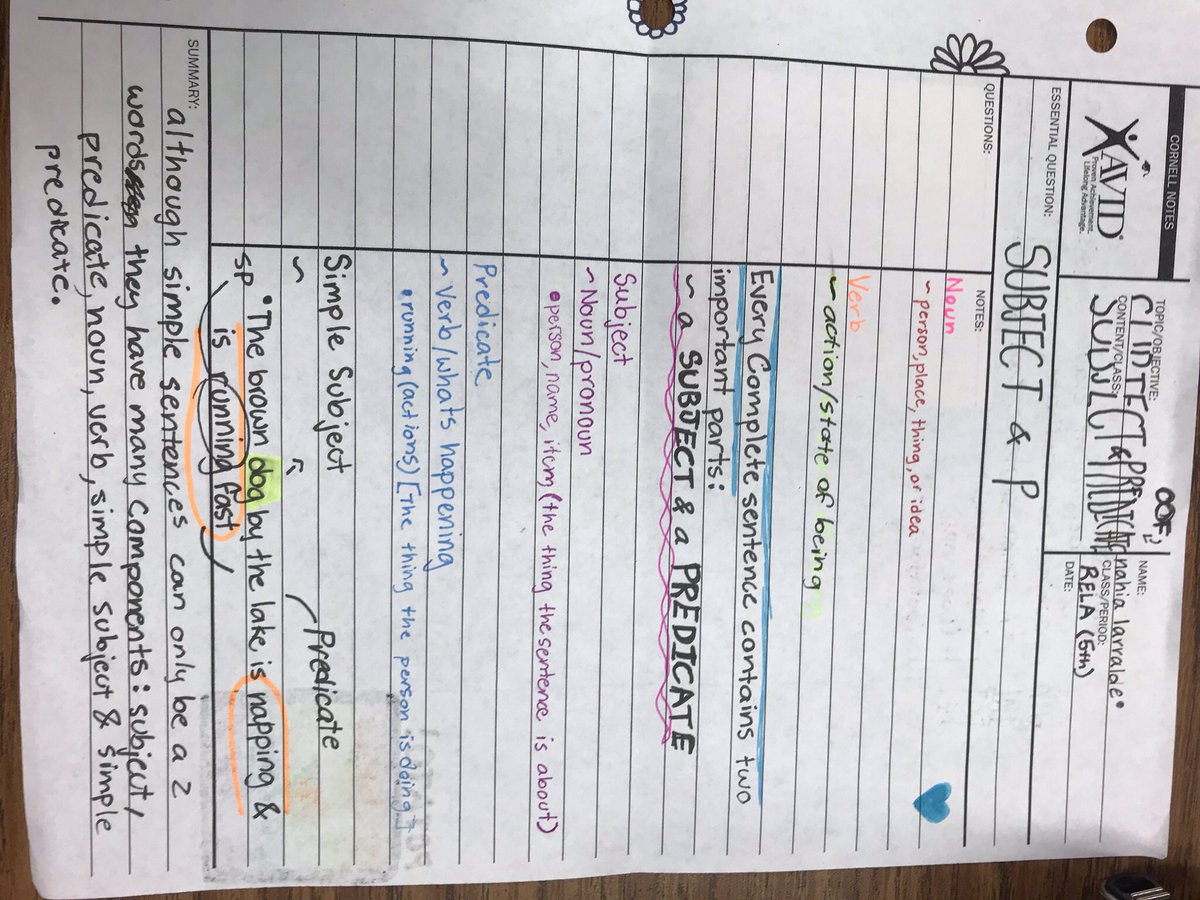 CORNELL NOTES
AVID®
Proven Achievement.
Lifelong Advantage.
TOPIC/OBJECTIVE:
OOF,
CONTENT/CLASS:
SUBJECT & PREDICATE
NAME:
nahia larralde
CLASS/PERIOD:
RELA (5th)
DATE:
ESSENTIAL QUESTION:
SUBJECT & P
QUESTIONS:
NOTES:
Noun
~ person, place, thing, or idea
Verb
~ action/state of being
Every Complete sentence contains two
important parts:
~ a SUBJECT & a PREDICATE
Subject
~ Noun/pronoun
• person, name, item (the thing the sentence is about)
Predicate
~ Verb/whats happening
• running (actions) [The thing the person is doing]
Simple Subject
Predicate
~
sp • The brown dog by the lake is napping &
is running fast
SUMMARY:
although simple sentences can only be a 2
words they have many components: subject/
predicate, noun, verb, simple subject & simple
predicate.